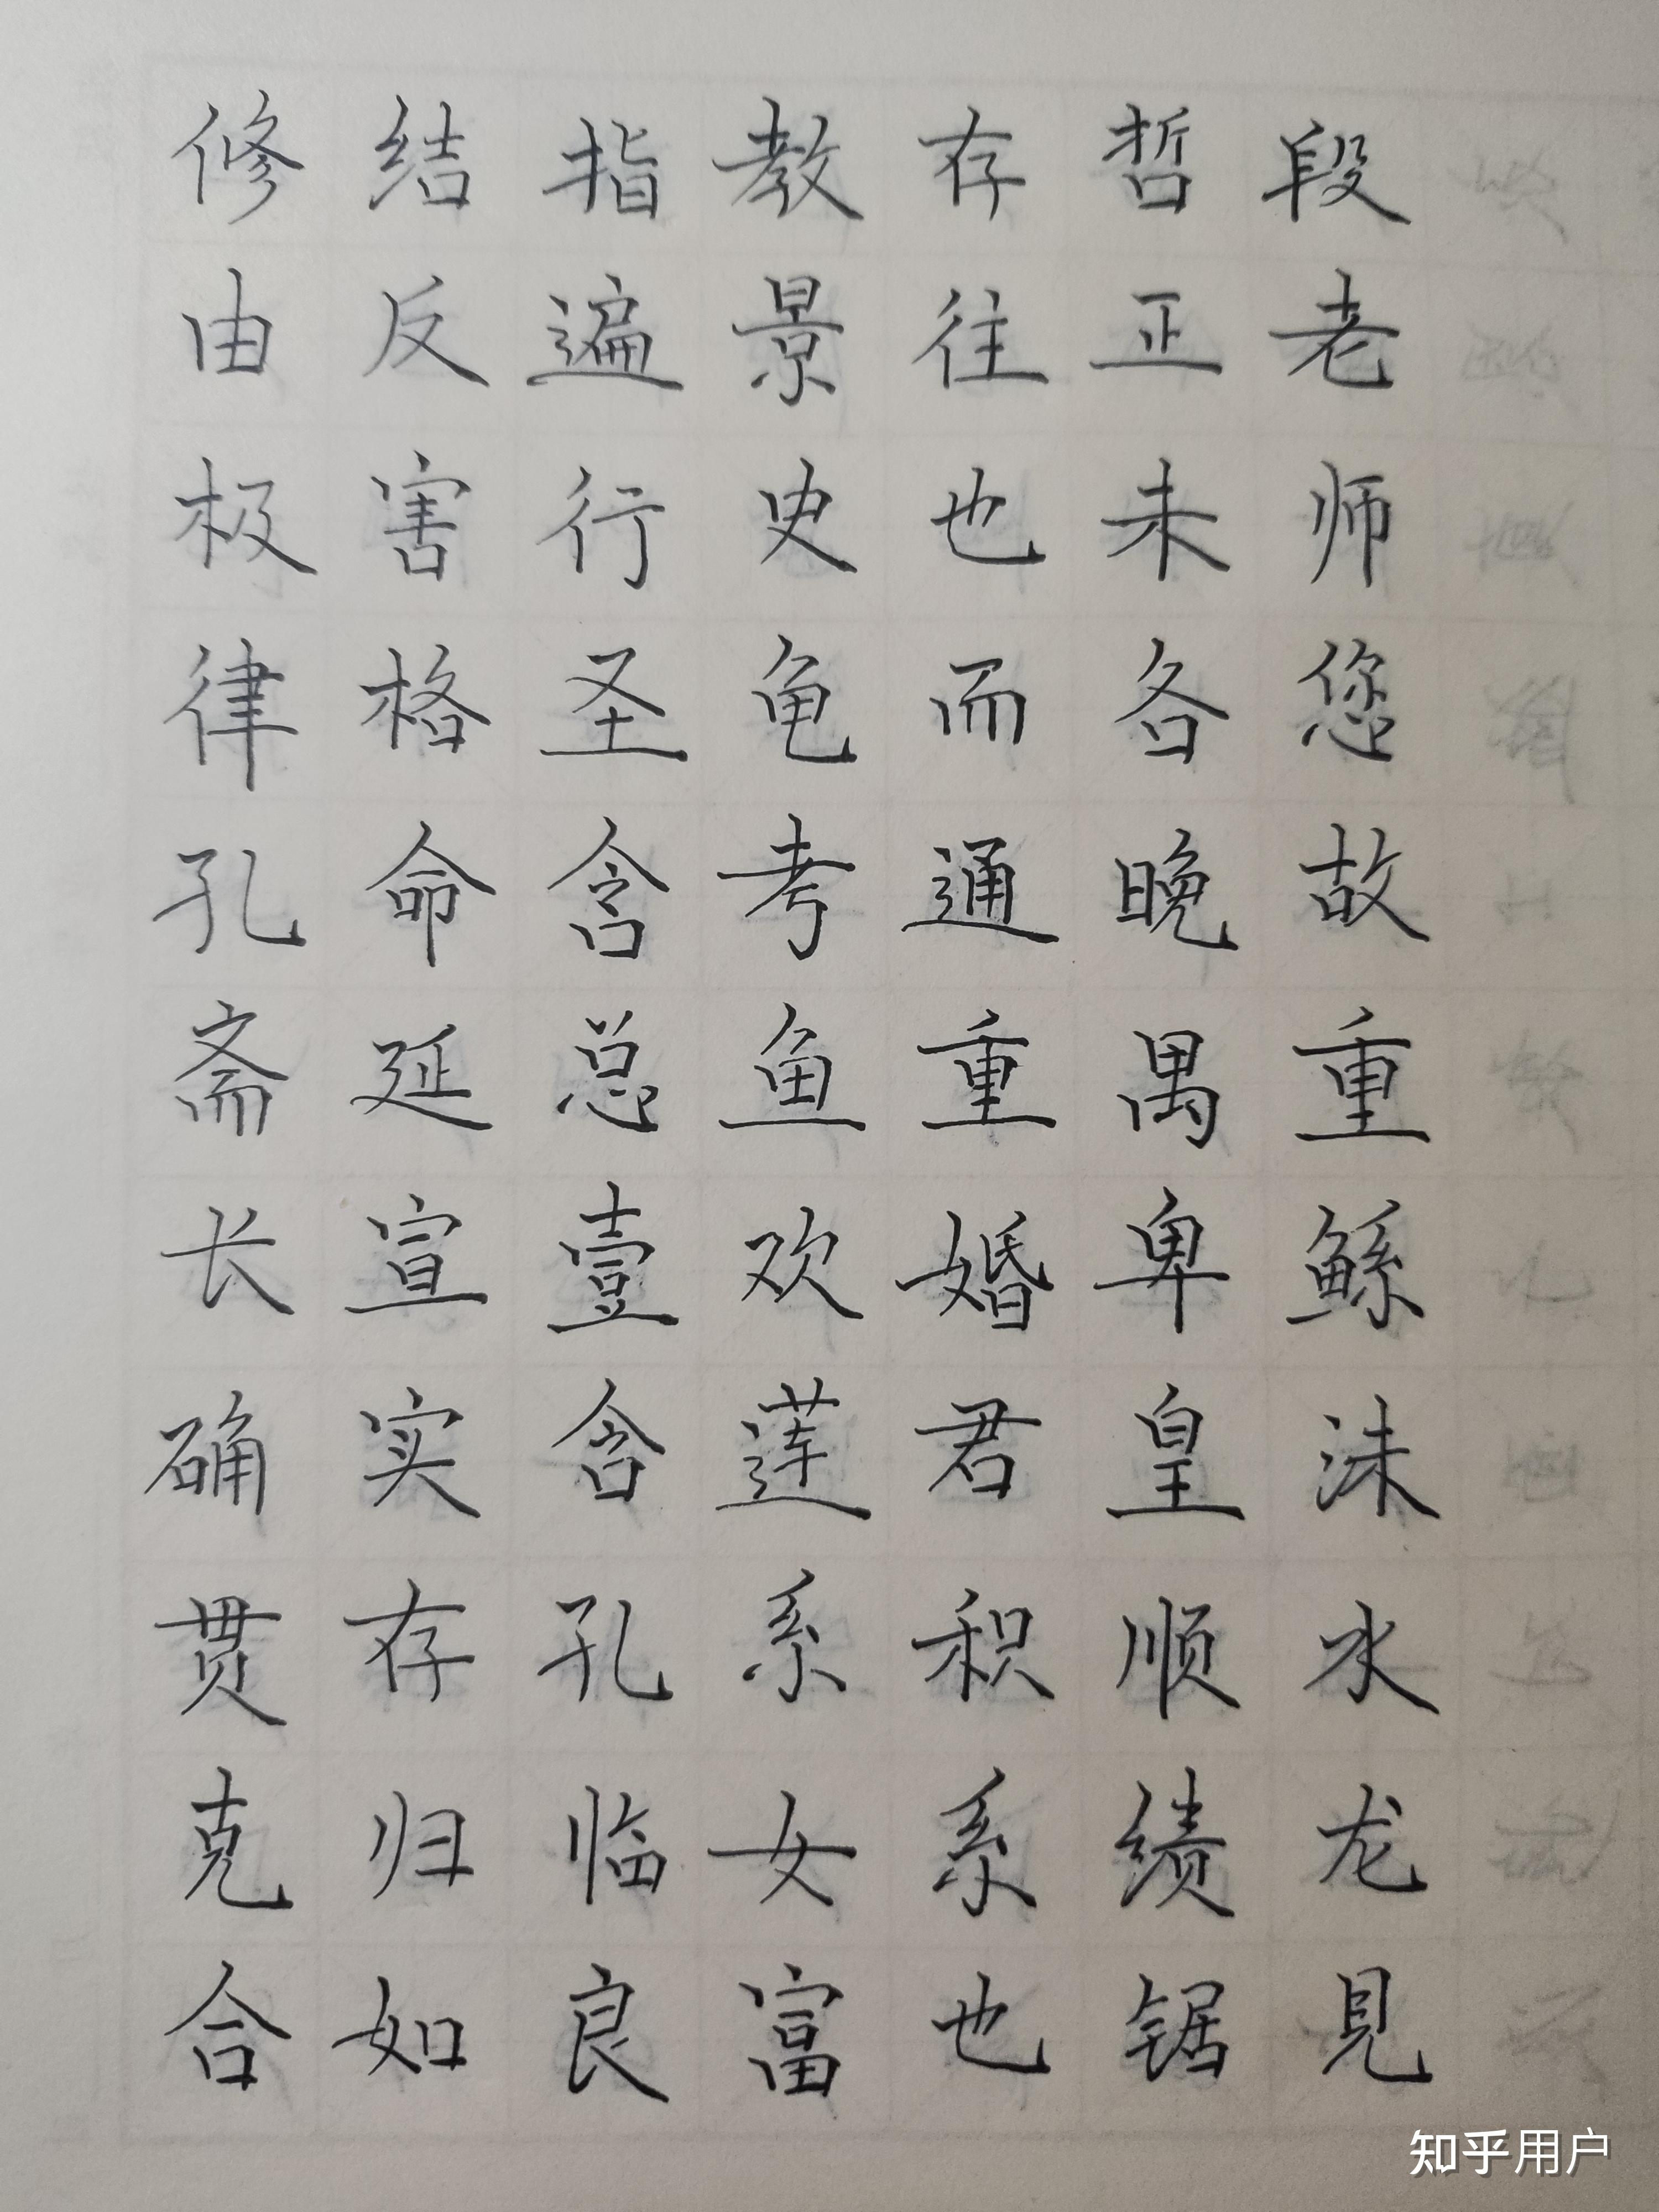 修结指教存哲段
由反遍景往正老
极害行史也未师
律格圣龟而各您
孔命含考通晚故
斋延总鱼重禺重
长宣壹欢婚卑鲧
确实含莲君皇沫
贯存孔系积顺水
克归临女系绩龙
合如良富也锯見
知乎用户